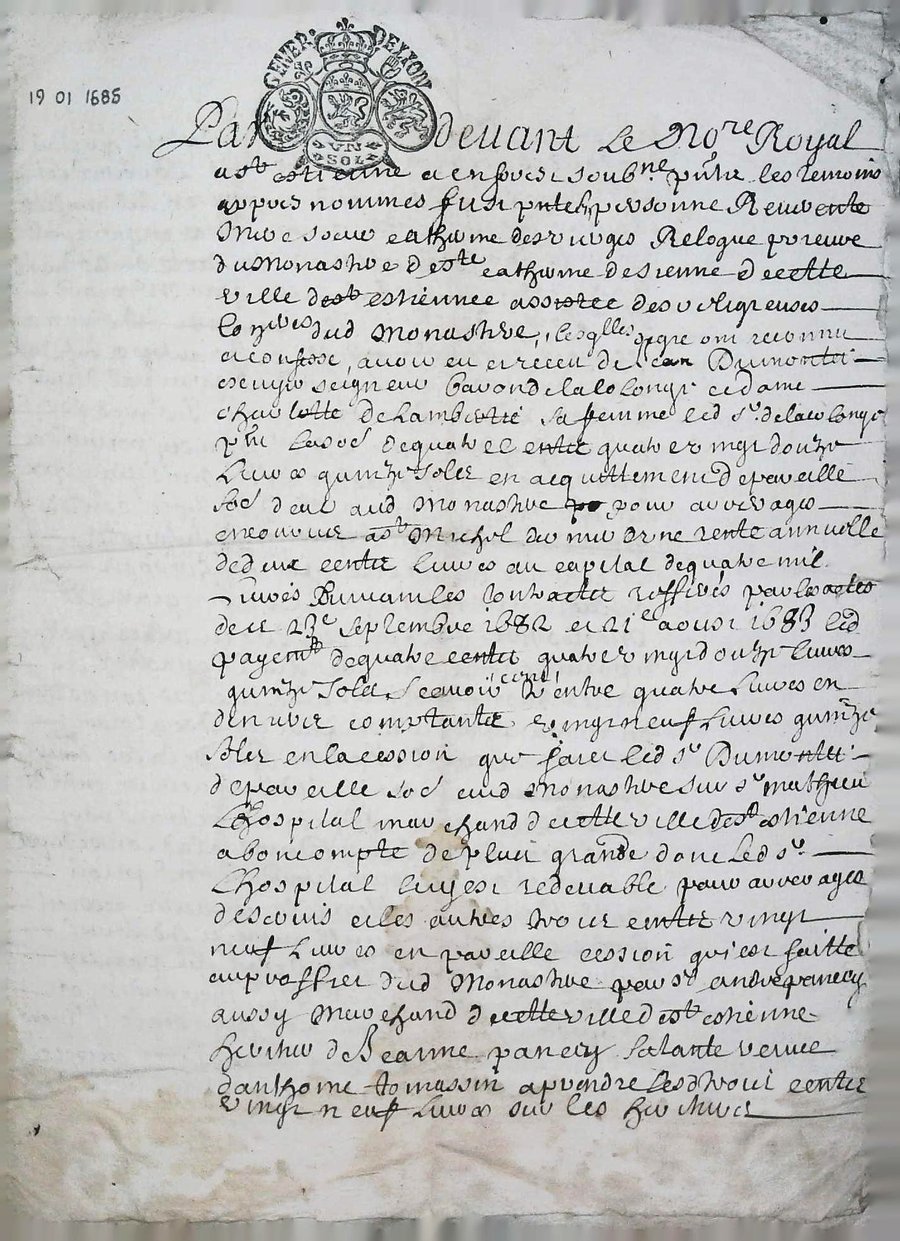 19 01 1685
GENER. DE LYON
UN SOL
Par devant Le No.re Royal
a st estienne et en forest soub.ne p.nt les temoins
appres nommes fust p.nte en personne Reverente
Mere soeur catherine des vierges prieure
du Monastere de ste catherine de sienne de cette
ville de st estienne assistee des religieuses
dud Monastere, lesq.lles de gre ont reconnu
et confesse, avoir eu et receu de Jean Dumontet
escuyer seigneur baron de la longe et dame
charlotte de sa femme led s.r de la longe
p.nt de quatre cents quatre vingt douze
Livres quinze solz en acquittement de pareille
deue aud Monastere pour arrerages
a st Michel dernier d'une rente annuelle
de deux cents livres au capital de quatre mil
Livres suivant les contracts par les actes
des 23e septembre 1682 et 21e aoust 1683 led
payem.t de quatre cents quatre vingt douze livres
quinze solz scavoir cent trente quatre Livres en
deniers comptants vingt neuf Livres quinze
solz en la cession que faict led s.r Dumontet
de pareille aud Monastere sur s.r mathieu
Lhospital marchand de cette ville de st estienne
a bon compte de plus grande dont Led s.r
Lhospital luy est redevable pour arrerages
et les autres trois cents vingt
neuf Livres en pareille cession qu'est faitte
au proffict dud Monastere par s.r andre panecy
aussy Marchand de cette ville de st estienne
heritier de Jeanne panecy vevue
danthoine tomassin a prendre Lesd trois cents
vingt neuf Livres sur les heritiers